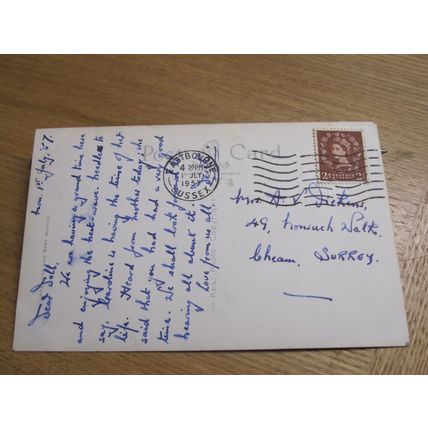 Post Card
EASTBOURNE
4 30PM
1 JULY
1957
SUSSEX
2D 2D
Mon. 1st July. '57.
Dear Doll,
We are having a grand time here
and enjoying the heat wave. Needless to
say, Caroline is having the time of her
life. Heard from mother today, she
said that you had had a very good
time. We shall look forward to
hearing all about it
love from us all
Mrs A. L. Dickens,
49, Nonsuch Walk,
Cheam, SURREY.